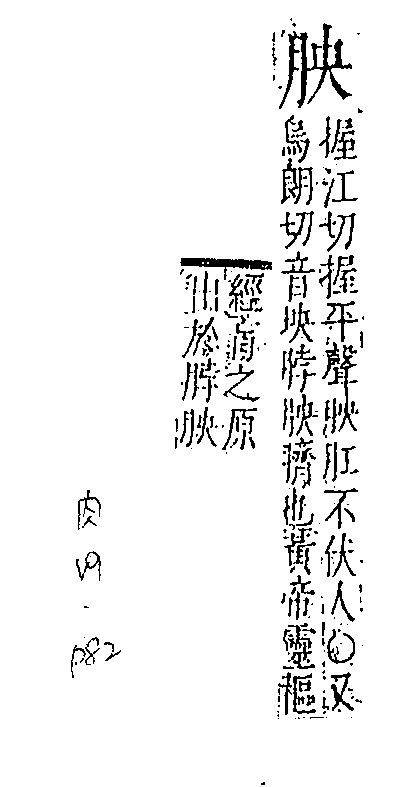 胦
握江切握平聲胦肛不伏人〇又
烏朗切音坱脖胦臍也黃帝靈樞
經肓之原
出於脖胦
肉
p82